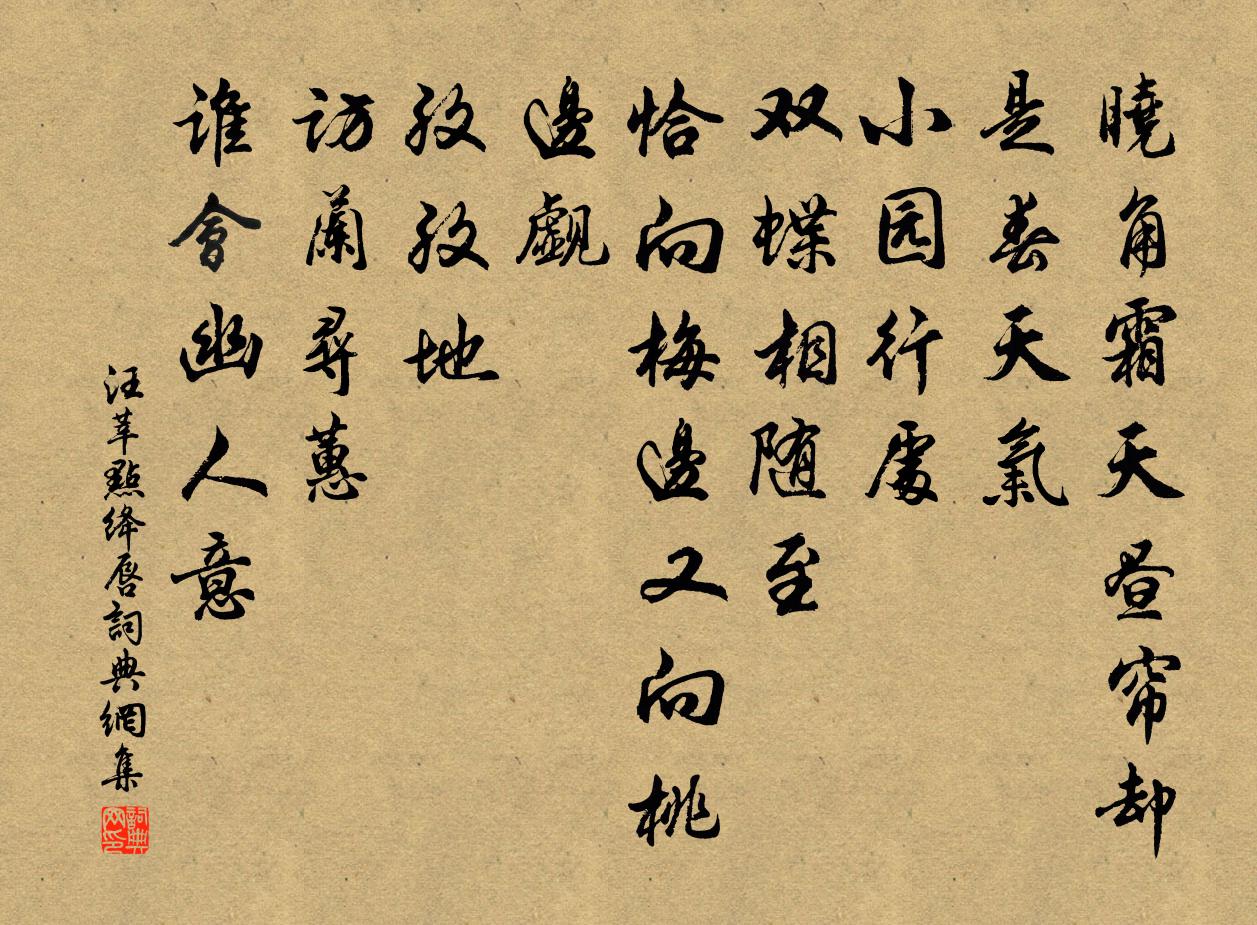 曉角霜天昼帘却
是春天氣
小园行處
双蝶相随至
恰向梅邊又向桃
邊覷
孜孜地
訪蘭尋蕙
誰會幽人意
汪莘點絳唇詞典網集
詞典网印